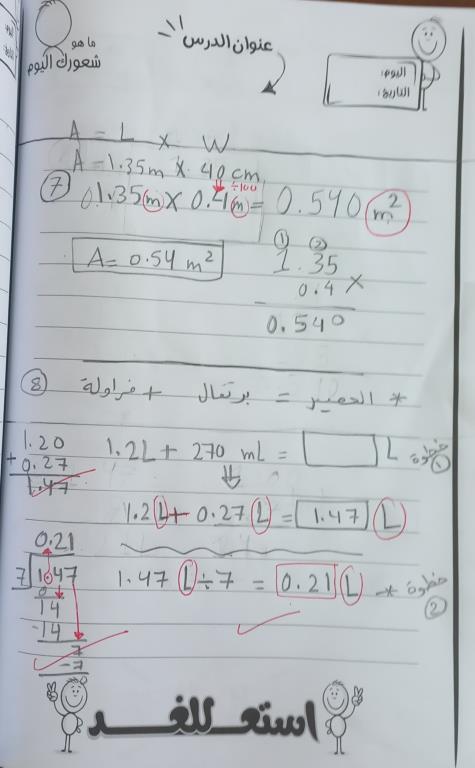 ما هو
شعورك اليوم
عنوان الدرس
اليوم:
التاريخ:
A = L x W
A = 1.35m x 40 cm
÷100
7 1.35 m x 0.4 m = 0.540 m²
A = 0.54 m²
1 2
1.35
0.4 x
0.540
8 * العصير = برتقال + فراولة
1.20
+ 0.27
1.47
خطوة 1
1.2L + 270 mL = L
1.2 L + 0.27 L = 1.47 L
0.21
7 1.47
0
14
-14
7
-7
* خطوة 2
1.47 L ÷ 7 = 0.21 L
استعــد للغــد